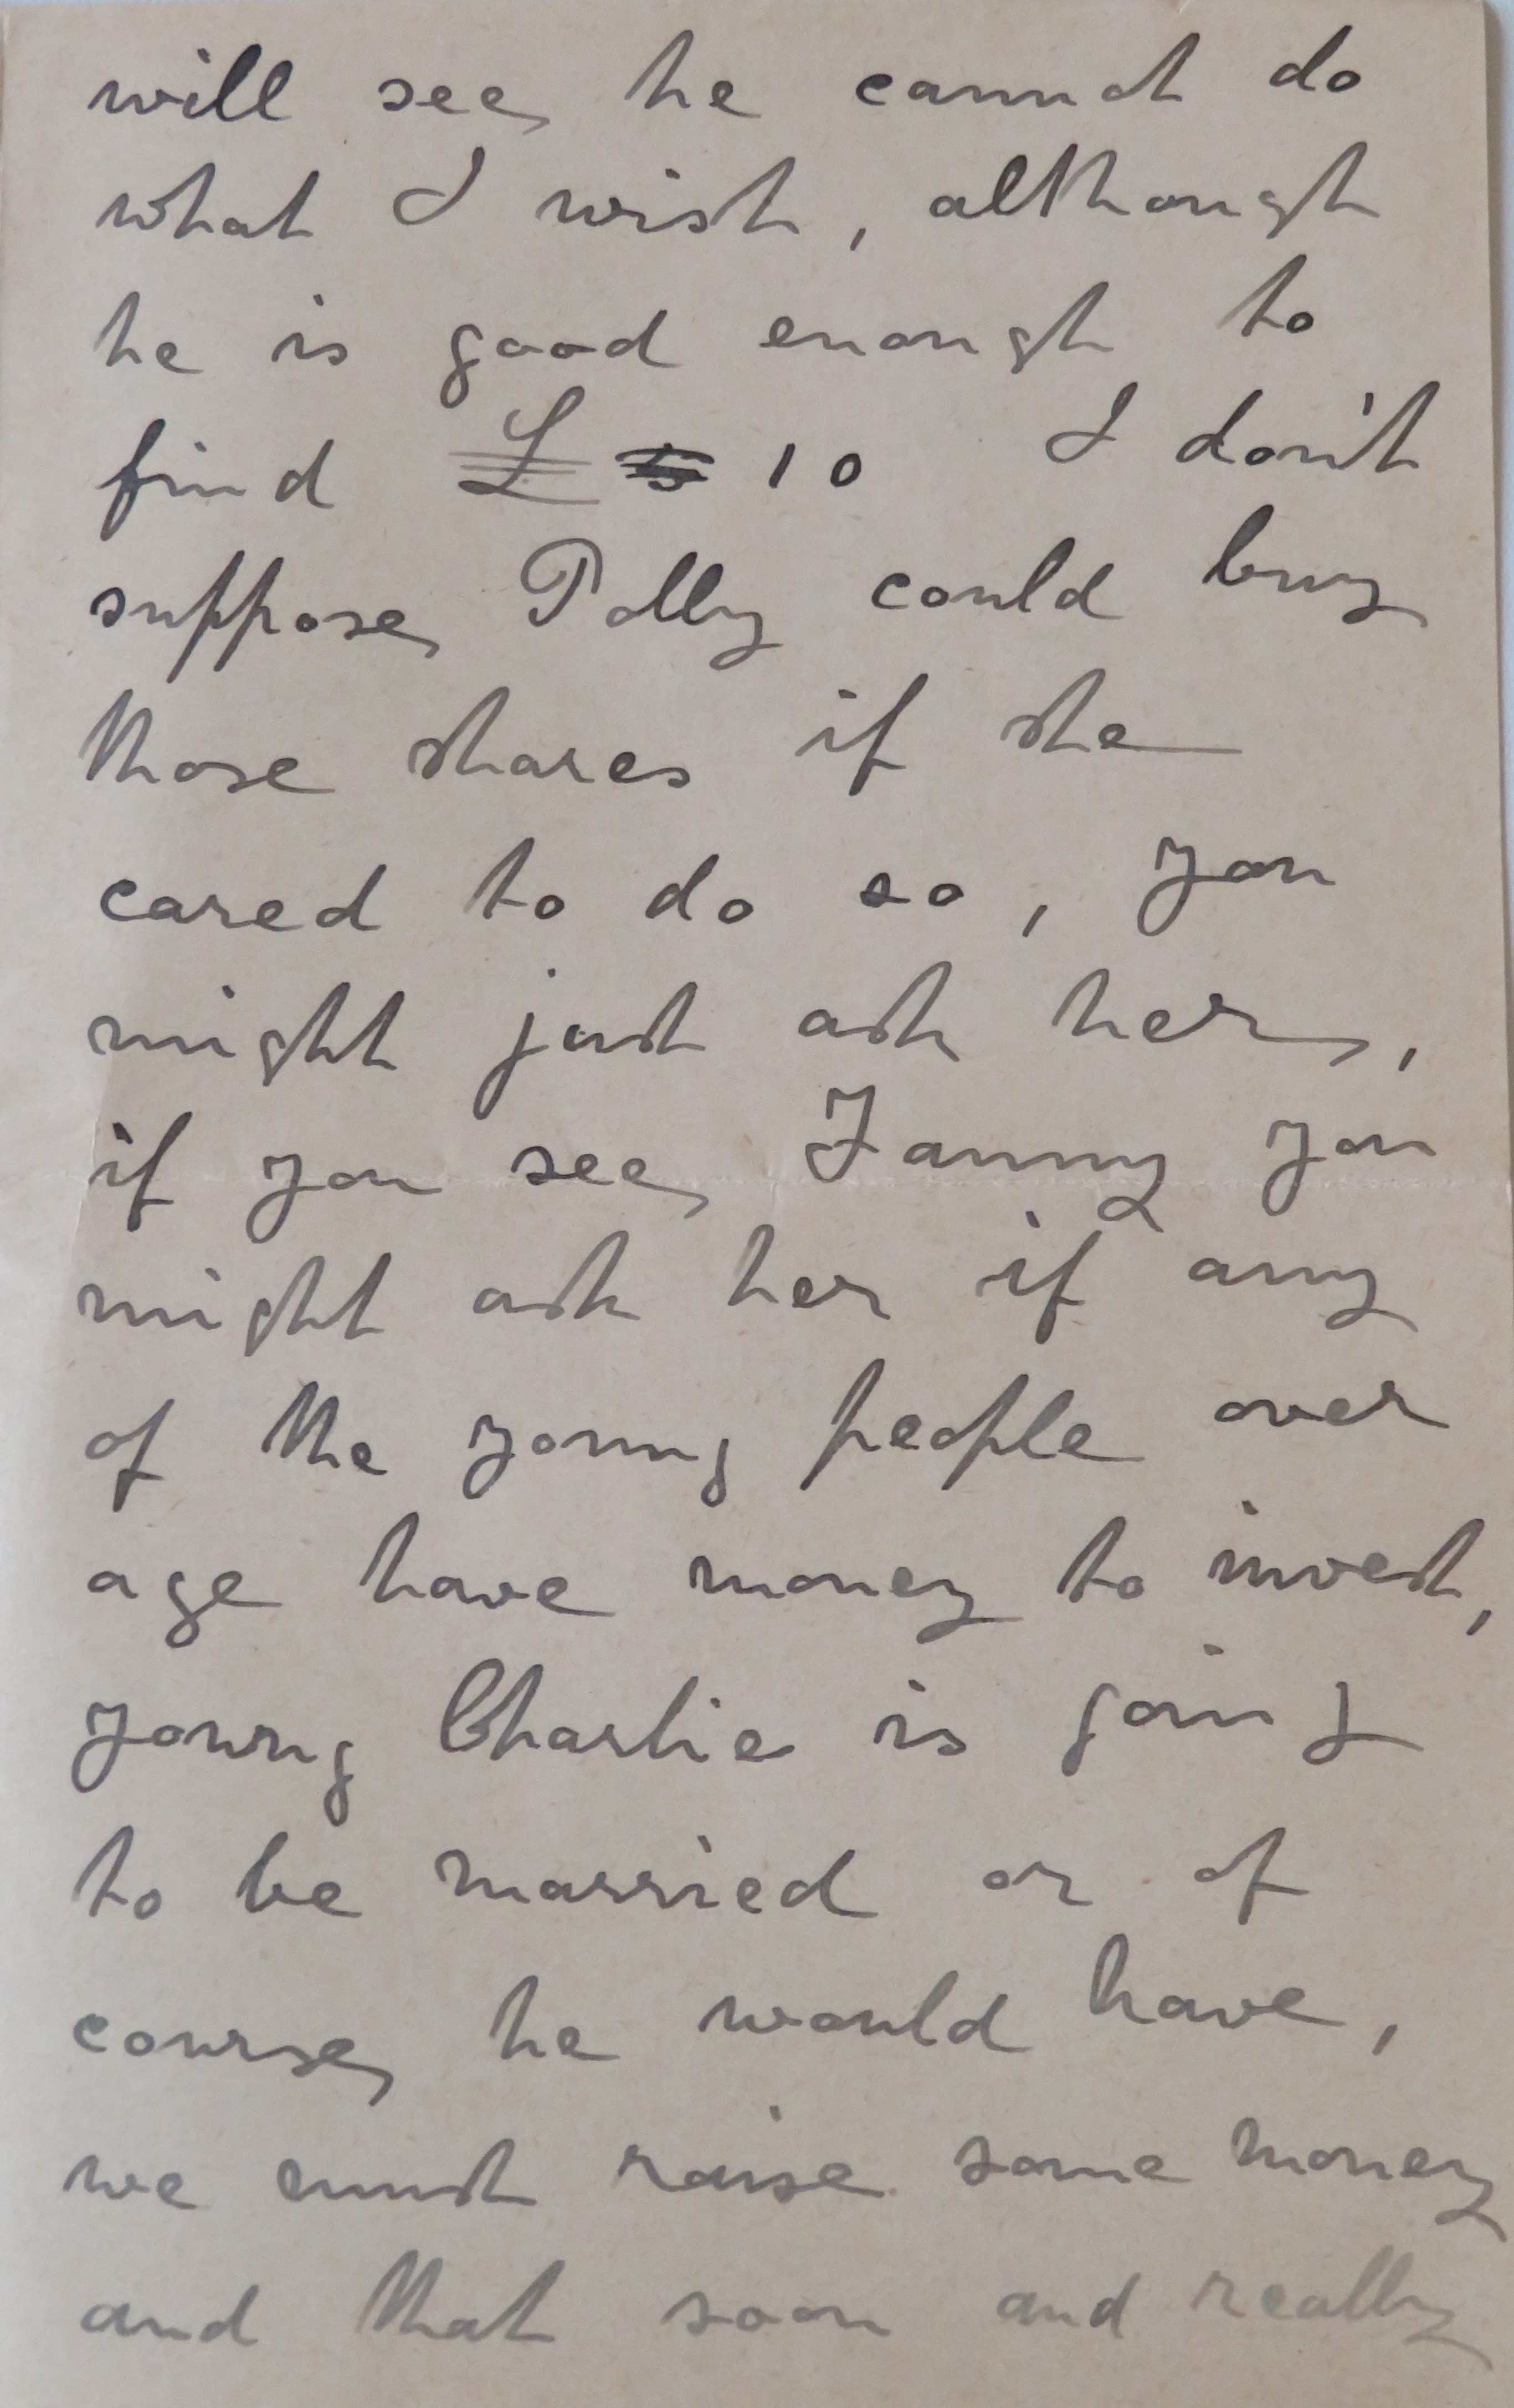 will see, he cannot do
what I wish, although
he is good enough to
find £ 10 I don't
suppose, Polly could buy
those shares if she
cared to do so, you
might just ask her,
if you see, Fanny you
might ask her if any
of the young people over
age have money to invest,
young Charlie is going
to be married or of
course, he would have,
we must raise some money
and that soon and really